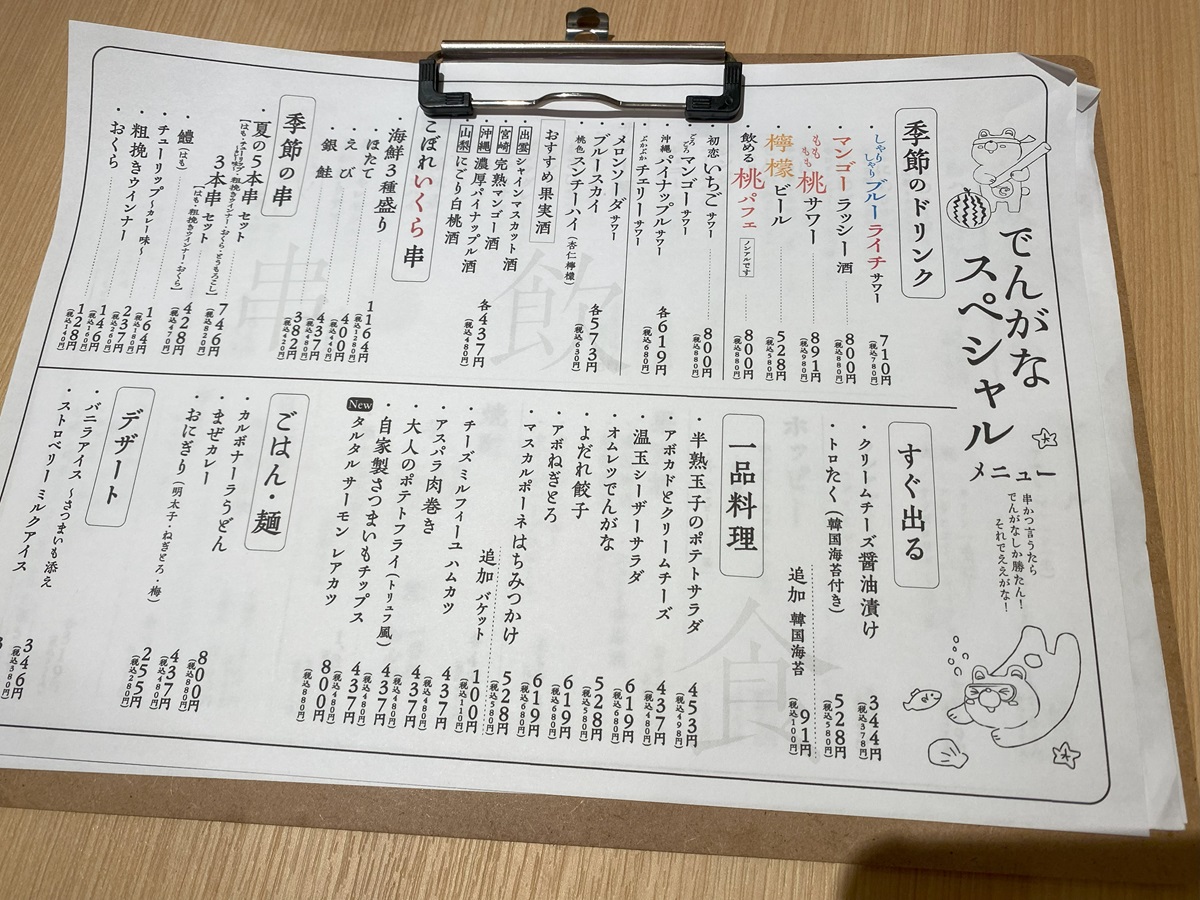 でんがな
スペシャル
メニュー
串かつ言うたら
でんがなしか勝たん!
それでええがな!
季節のドリンク
しゃりしゃりブルーライチサワー 710円(税込780円)
マンゴーラッシー酒 800円(税込880円)
ももも桃サワー 891円(税込980円)
檸檬ビール 528円(税込580円)
飲める桃パフェ ノンアルです 800円(税込880円)
初恋いちごサワー 800円(税込880円)
ごろごろマンゴーサワー
沖縄パイナップルサワー 各619円(税込680円)
ぷかぷかチェリーサワー
メロンソーダサワー
ブルースカイ 各573円(税込630円)
桃色スンチーハイ(杏仁檸檬)
おすすめ果実酒
出雲 シャインマスカット酒
宮崎 完熟マンゴー酒 各437円(税込480円)
沖縄 濃厚パイナップル酒
山梨 にごり白桃酒
こぼれいくら串
・海鮮3種盛り 1164円(税込1280円)
・ほたて 400円(税込440円)
・えび 437円(税込480円)
・銀鮭 382円(税込420円)
季節の串
・夏の5本串セット 746円(税込820円)
[はも・チューリップ・粗挽きウインナー・おくら・とうもろこし]
3本串セット 428円(税込470円)
[はも・粗挽きウインナー・おくら]
・鱧(はも) 237円(税込260円)
・チューリップ〜カレー味〜 164円(税込180円)
・粗挽きウインナー 146円(税込160円)
・おくら 128円(税込140円)
飲
串
すぐ出る
・クリームチーズ醤油漬け 344円(税込378円)
・トロたく(韓国海苔付き) 528円(税込580円)
追加 韓国海苔 91円(税込100円)
一品料理
・半熟玉子のポテトサラダ 453円(税込498円)
・アボカドとクリームチーズ 437円(税込480円)
・温玉シーザーサラダ 619円(税込680円)
・オムレツでんがな 528円(税込580円)
・よだれ餃子 619円(税込680円)
・アボねぎとろ 619円(税込680円)
・マスカルポーネはちみつかけ 528円(税込580円)
追加 バケット 100円(税込110円)
・チーズミルフィーユハムカツ 437円(税込480円)
・アスパラ肉巻き 437円(税込480円)
・大人のポテトフライ(トリュフ風) 437円(税込480円)
・自家製さつまいもチップス 437円(税込480円)
New タルタルサーモンレアカツ 800円(税込880円)
食
ごはん・麺
・カルボナーラうどん 800円(税込880円)
・まぜカレー 437円(税込480円)
・おにぎり(明太子・ねぎとろ・梅) 255円(税込280円)
デザート
・バニラアイス〜さつまいも添え 346円(税込380円)
・ストロベリーミルクアイス